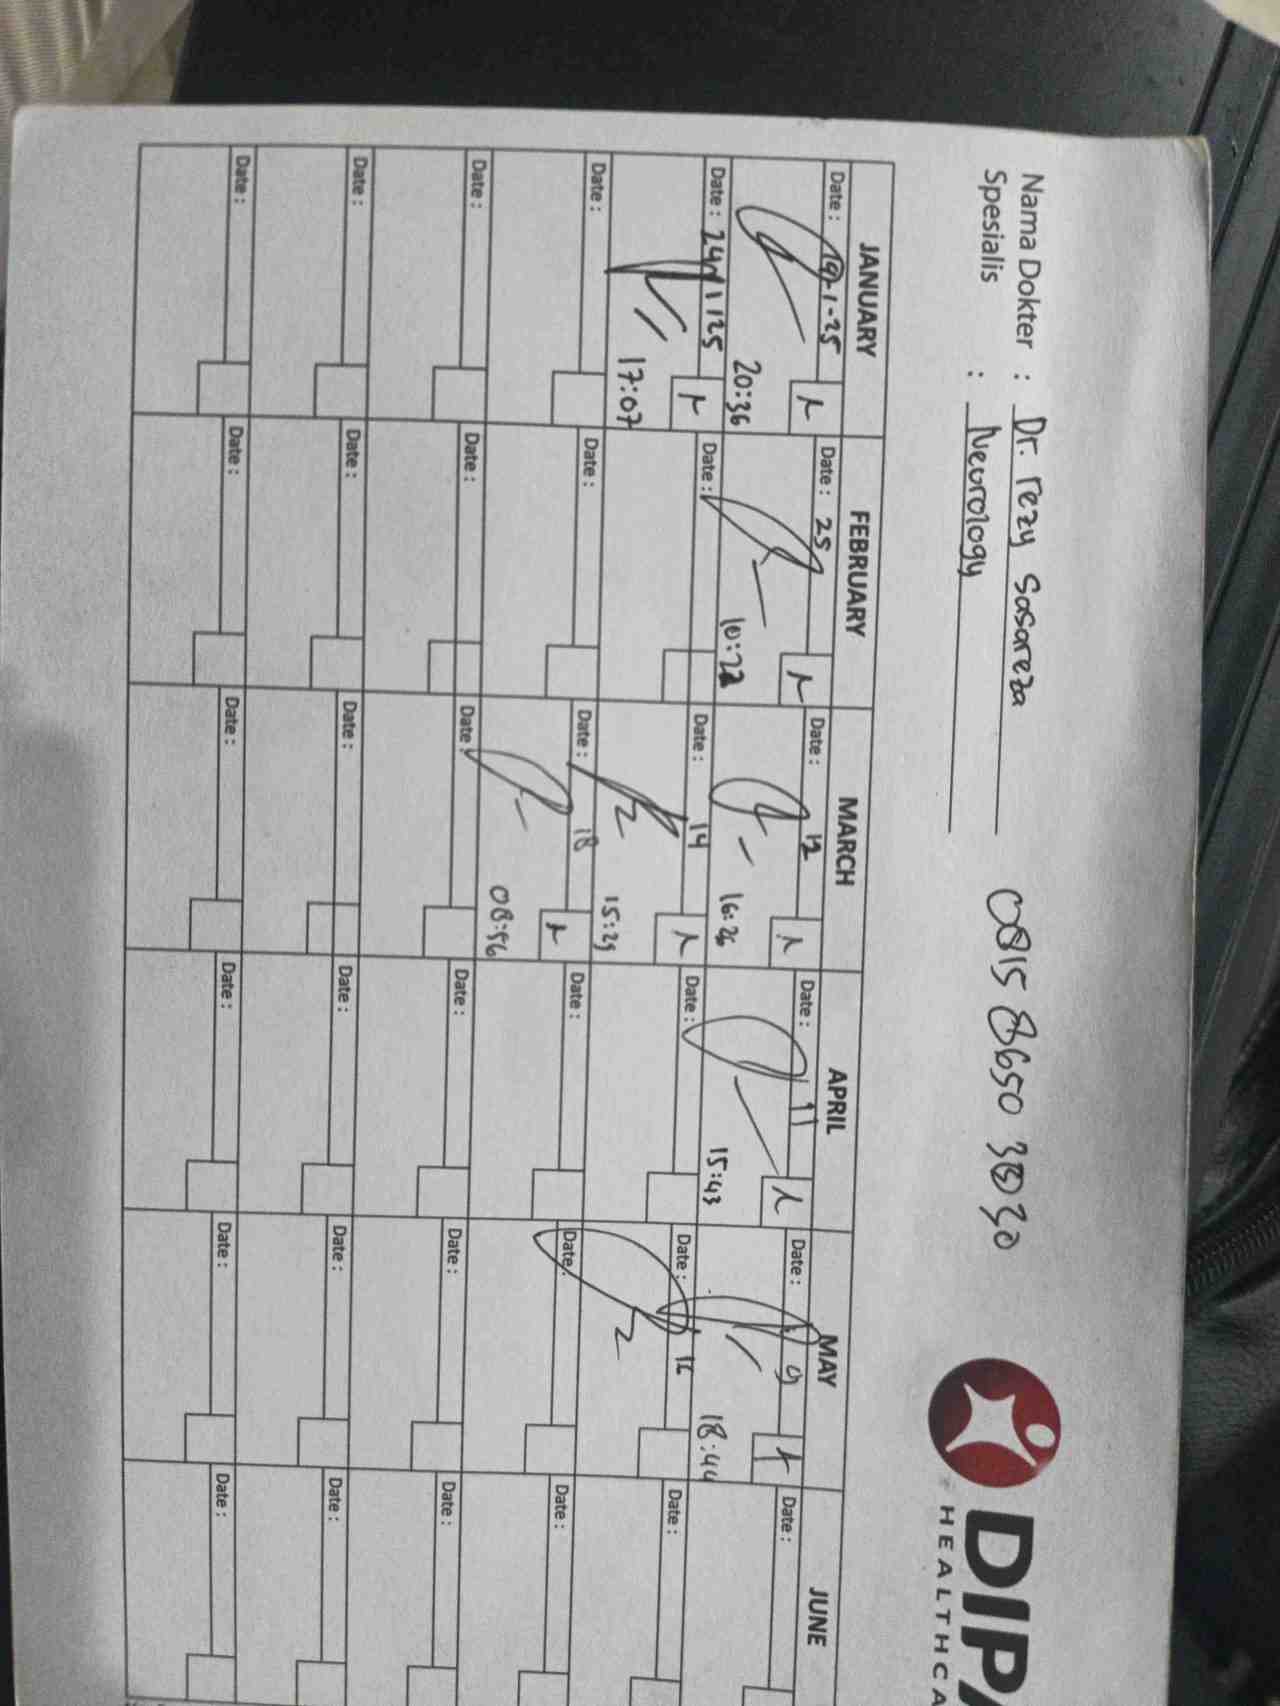 Nama Dokter : Dr. rezy Sasareza
Spesialis : Neurology
0815 8650 3030
DIPA
HEALTHCA
JANUARY FEBRUARY MARCH APRIL MAY JUNE
Date : 19-1-25 Date : 25 Date : 12 Date : 11 Date : 9 Date :
20:36 10:22 16:26 15:43 18:44
Date : 24/1/25 Date : Date : 14 Date : Date : 16 Date :
17:07 15:29
Date : Date : Date : 18 Date : Date : Date :
08:56
Date : Date : Date : Date : Date : Date :
Date : Date : Date : Date : Date : Date :
Date : Date : Date : Date : Date : Date :